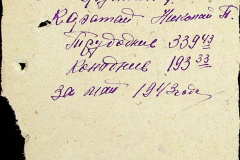 Каратай Николай П.
Трудодней 339 43
Конодней 193 33
за май 1943 года